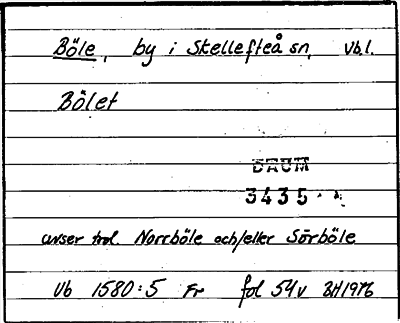 Böle, by i Skellefteå sn, Vb.l.
Bölet
DAUM
3435
avser trol. Norrböle och/eller Sörböle
Vb 1580:5 Fr fol 54v BH1976